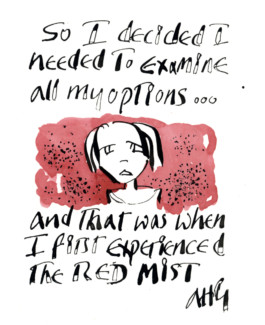 So I decided I
needed To examine
all my options ...
And that was when
I first experienced
The RED MIST